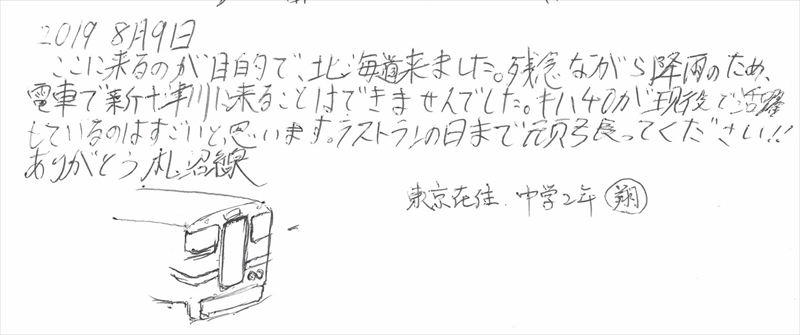 2019 8月9日
ここに来るのが目的で、北海道来ました。残念ながら降雨のため、
電車で新十津川に来ることはできませんでした。キハ40が現役で活躍
しているのはすごいと思います。ラストランの日まで頑張ってください!!
ありがとう札沼線
東京在住 中学2年 翔